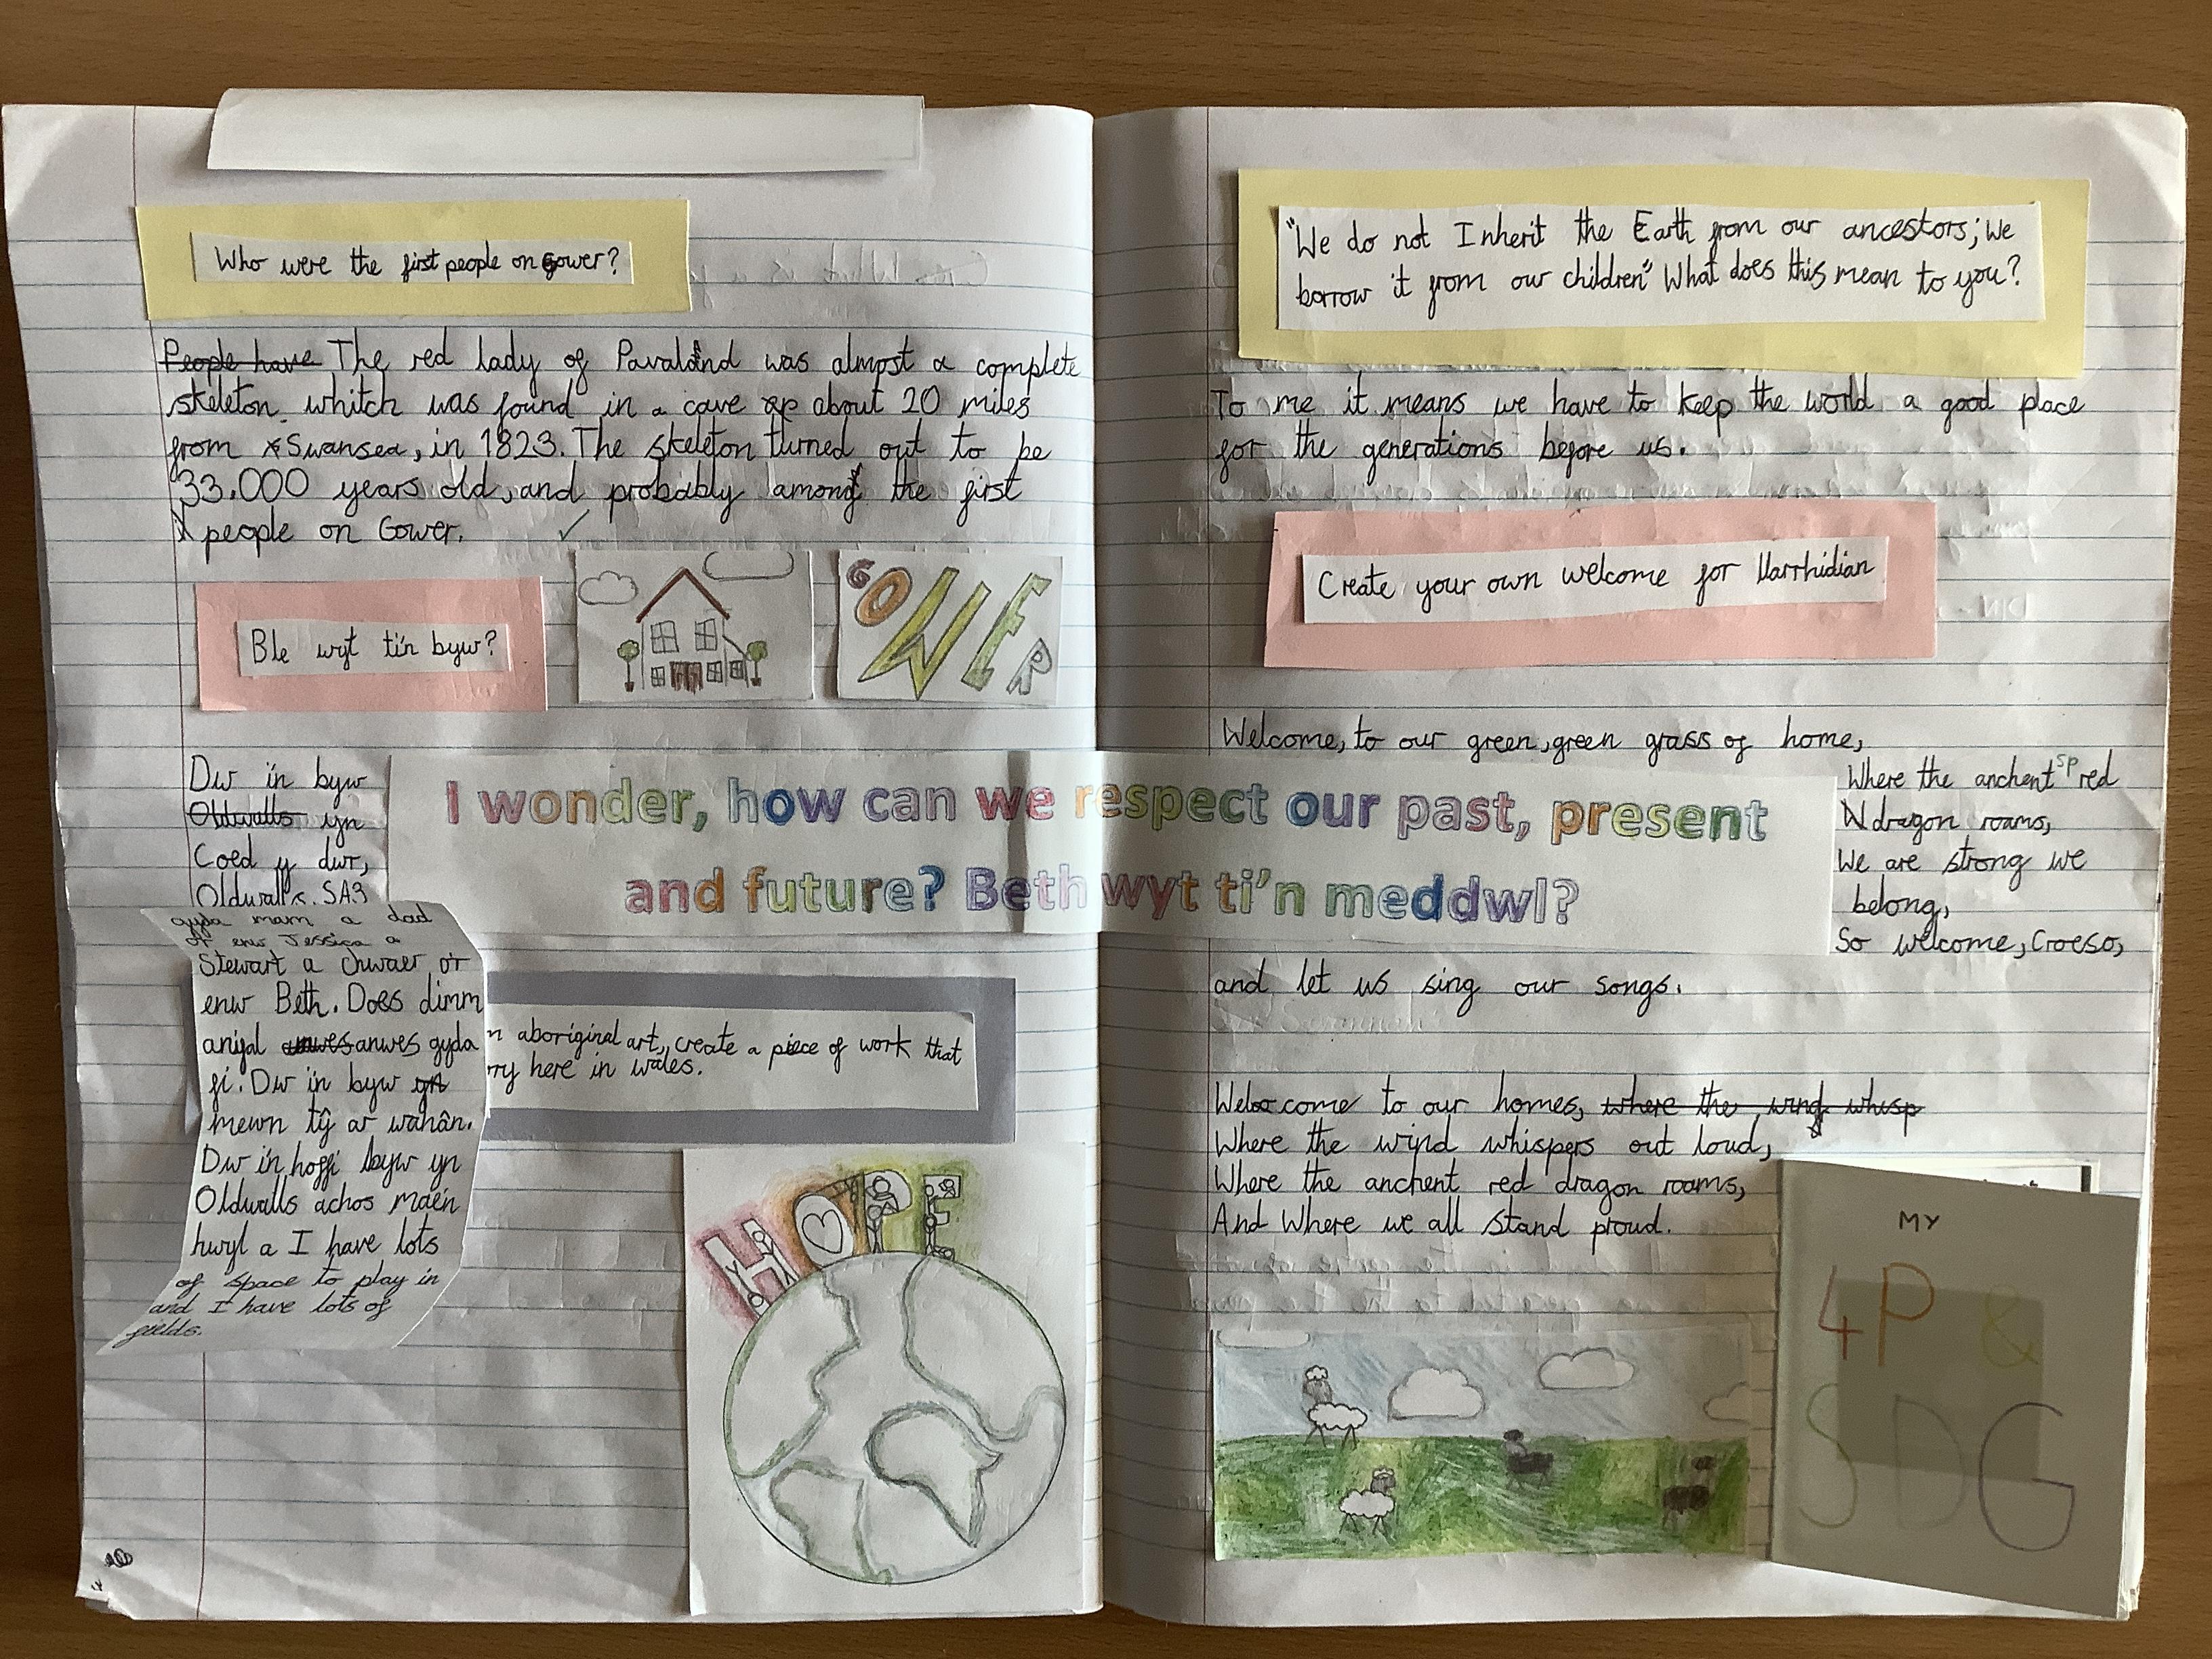 Who were the first people on Gower?
People have The red lady of Pavaland was almost a complete
skeleton whitch was found in a cave ap about 20 miles
from Swansea, in 1823. The skeleton turned out to be
33.000 years old, and probably among the first
people on Gower.
Ble wyt ti'n byw?
GOWER
Dw i'n byw
Oldwalls yn
Coed y dwr,
Oldwalls, SA3
gyda mam a dad
o'r enw Jessica a
Stewart a Chwaer o'r
enw Beth. Does dimm
anifal anwes gyda
fi. Dw i'n byw yn
mewn tŷ ar wahân.
Dw i'n hoffi byw yn
Oldwalls achos mae'n
hwyl a I have lots
of space to play in
and I have lots of
fields.
I wonder, how can we respect our past, present
and future? Beth wyt ti'n meddwl?
aboriginal art, create a piece of work that
here in wales.
HOPE
"We do not Inherit the Earth from our ancestors; We
borrow it from our children" What does this mean to you?
To me it means we have to keep the world a good place
for the generations before us.
Create your own welcome for Llarrhidian
Welcome, to our green, green grass of home,
Where the anchent sp red
dragon roams,
We are strong we
belong,
So welcome, Croeso,
and let us sing our songs.
Welcome to our homes, where the wing whisp
Where the wind whispers out loud,
Where the anchent red dragon roams,
And Where we all stand proud.
MY
4P &
SDG